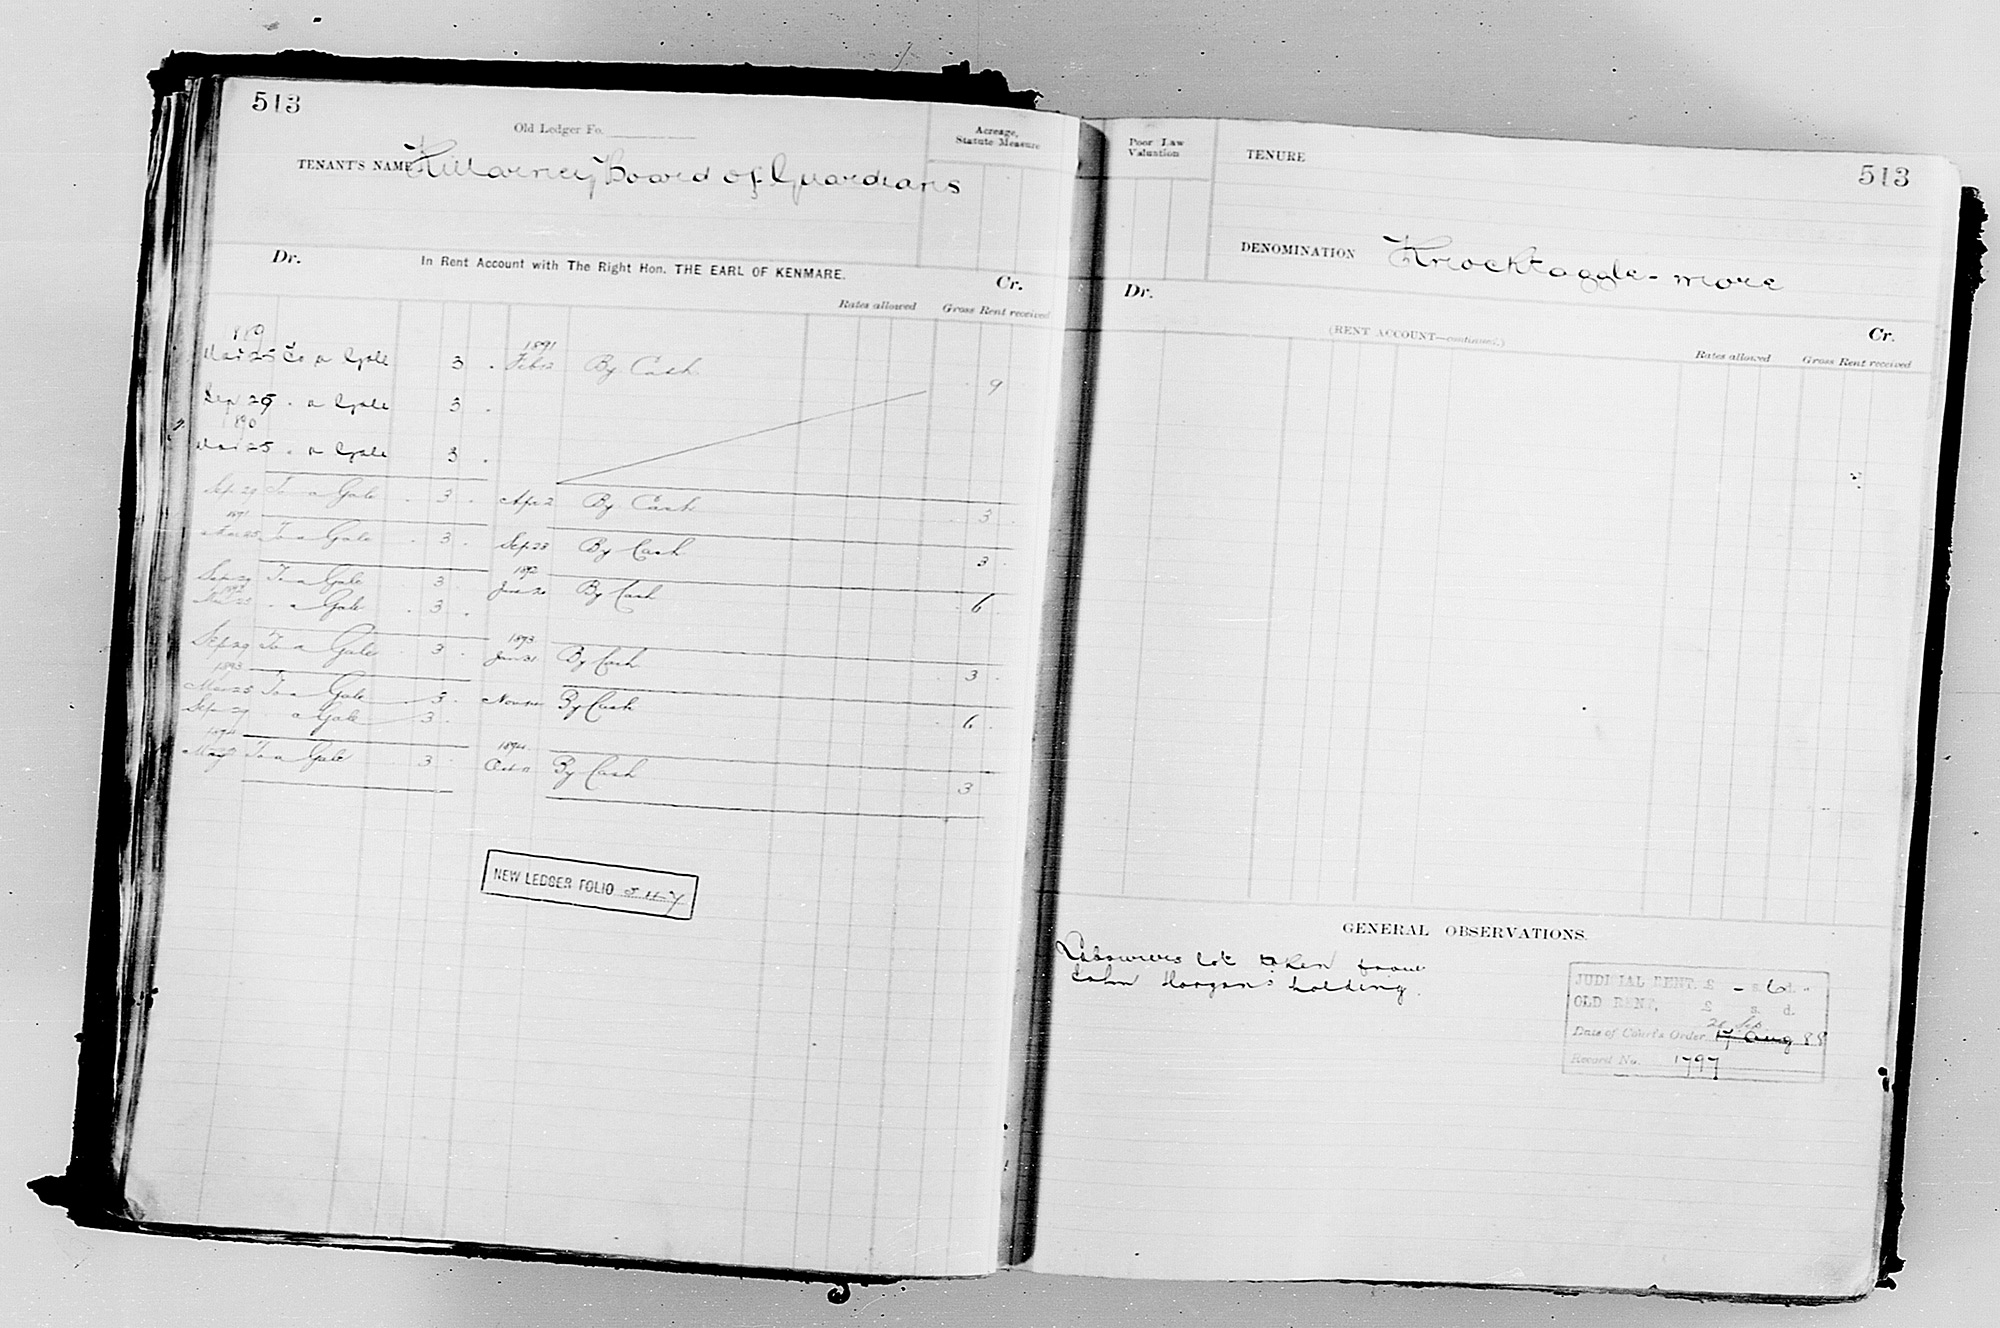 513
Old Ledger Fo.
TENANT'S NAME Killarney Board of Guardians
Acreage,
Statute Measure
Dr. In Rent Account with The Right Hon. THE EARL OF KENMARE. Cr.
Rates allowed Gross Rent received
1889 1891
Mar 25 To a Gale 3 . Feb 12 By Cash 9
Sep 29 . a Gale 3 .
1890
Mar 25 . a Gale 3 .
Sep 29 To a Gale . 3 . Apr 2 By Cash 3
1891
Mar 25 To a Gale . 3 . Sep 23 By Cash 3
1892
Sep 29 To a Gale 3 Jun 20 By Cash 6
1892
Mar 25 . a Gale . 3 .
1893
Sep 29 To a Gale . 3 . Jan 21 By Cash 3
1893
Mar 25 To a Gale 3 . Nov By Cash 6
Sep 29 a Gale 3 .
1894 1894
To a Gale . 3 Oct 11 By Cash 3
NEW LEDGER FOLIO 547
Poor Law
Valuation
TENURE
513
DENOMINATION Knocktaggle-more
Dr. (RENT ACCOUNT—continued.) Cr.
Rates allowed Gross Rent received
GENERAL OBSERVATIONS.
Labourers lot taken from
John Horgans holding.
JUDICIAL RENT, £ - s. 6 d. -
OLD RENT, £ s. d.
26 Sep
Date of Court's Order 17 Aug 88
Record No. 1797